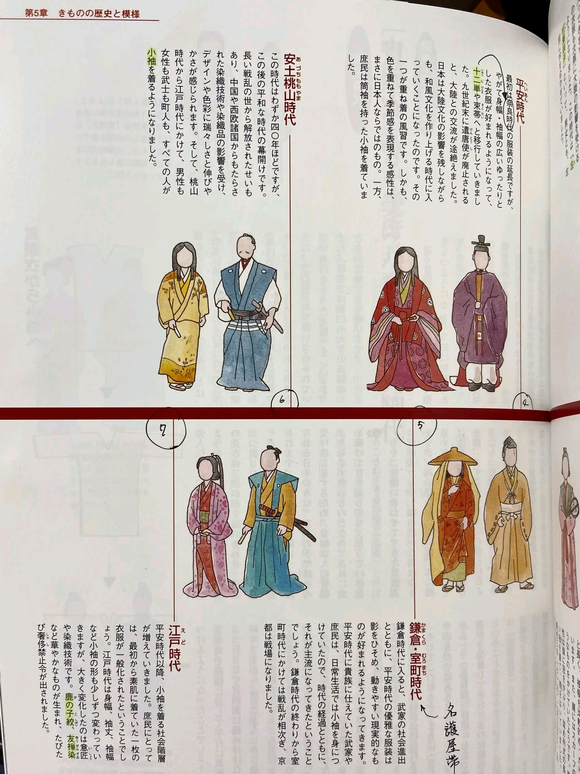 第5章 きものの歴史と模様
平安時代
最初は奈良時代の服装の延長ですが、
やがて身幅・袖幅の広いゆったりと
した衣服が好まれるようになって、
十二単や束帯へと移行していきまし
た。九世紀末に遣唐使が廃止される
と、大陸との交流が途絶えました。
日本は大陸文化の影響を残しながら
も、和風文化を作り上げる時代に入
っていくことになったのです。その
一つが重ね着の風習です。しかも、
色を重ねて季節感を表現する感性は、
まさに日本人ならではのもの。一方、
庶民は筒袖を持った小袖を着ていま
した。
④
あづちももやま
安土桃山時代
この時代はわずか四〇年ほどですが、
この後の平和な時代の幕開けです。
長い戦乱の世から解放されたせいも
あり、中国や西欧諸国からもたらさ
れた染織技術や染織品の影響を受け、
デザインや色彩に瑞々しさと伸びや
かさが感じられます。そして、桃山
時代から江戸時代にかけて、男性も
女性も武士も町人も、すべての人が
小袖を着るようになりました。
⑥
⑤
かまくら むろまち
鎌倉・室町時代
名護屋帯
鎌倉時代に入ると、武家の社会進出
とともに、平安時代の優雅な服装は
影をひそめ、動きやすい現実的なも
のが好まれるようになってきます。
平安時代に貴族に仕えていた武家や
庶民は、日常生活では小袖を身につ
けていたので、時代の経過とともに、
それが主流になってきたということ
でしょう。鎌倉時代の終わりから室
町時代にかけては戦乱が相次ぎ、京
都は戦場になりました。
⑦
えど
江戸時代
平安時代以降、小袖を着る社会階層
が増えていきました。庶民にとって
は、最初から素肌に着ていた一枚の
衣服が一般化されたということでし
ょう。江戸時代は身幅、袖丈、袖幅
など小袖の形も少しずつ変わってい
きますが、大きく変化したのは意匠
や染織技術です。鹿の子絞、友禅染
など華やかなものが生まれ、たびた
び奢侈禁止令が出されました。